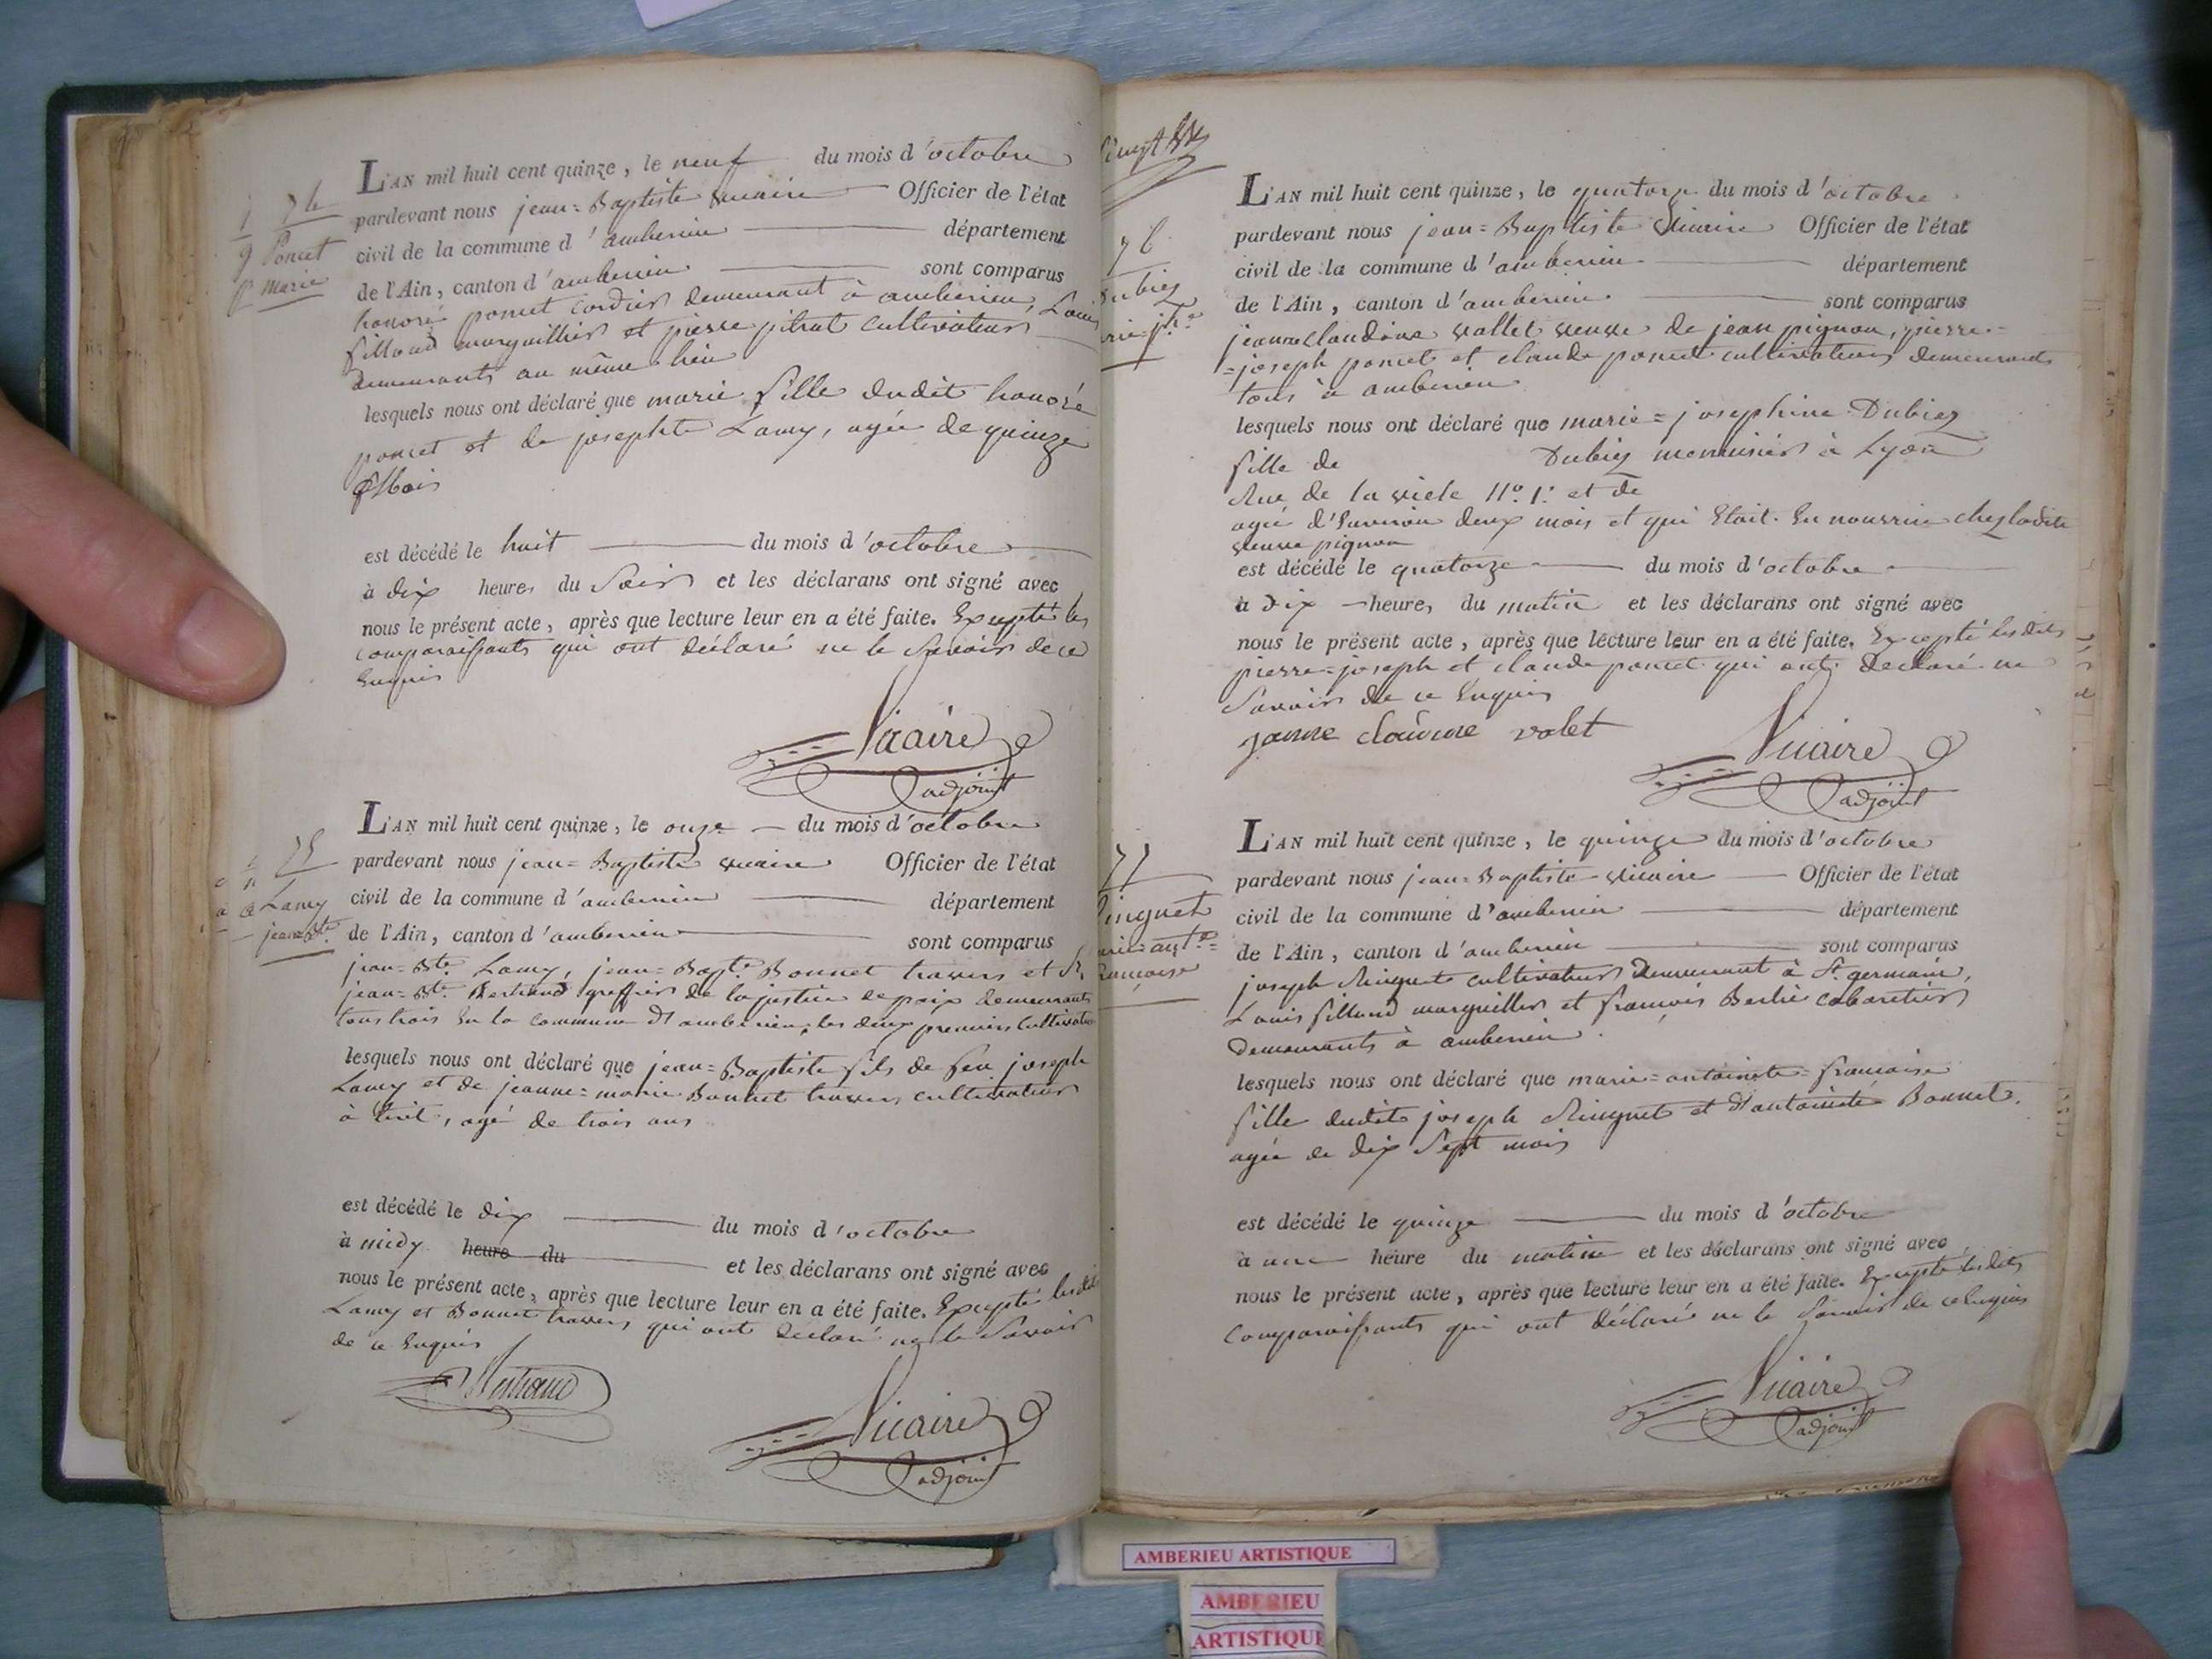 74
Poncet
Marie
L'AN mil huit cent quinze, le neuf du mois d'octobre
pardevant nous jean=Baptiste vicaire Officier de l'état
civil de la commune d'amberieu département
de l'Ain, canton d'amberieu sont comparus
honoré poncet cordier demeurant à amberieu, Louis
fillaud marguillier et pierre pitrat cultivateur
demeurants au même lieu
lesquels nous ont déclaré que marie fille dudit honoré
poncet et de josephte Lamy, agée de quinze
mois
est décédé le huit du mois d'octobre
à dix heures du Soir et les déclarans ont signé avec
nous le présent acte, après que lecture leur en a été faite. Excepté les
comparaissants qui ont déclaré ne le Savoir de ce
Enquis
Vicaire
adjoint
75
Lamy
jean Bte.
L'AN mil huit cent quinze, le onze du mois d'octobre
pardevant nous jean=Baptiste vicaire Officier de l'état
civil de la commune d'amberieu département
de l'Ain, canton d'amberieu sont comparus
jean=Bte. Lamy, jean=Bapte. Bonnet travers et Sr.
jean=Bte. Bertrand greffier de la justice de paix demeurants
tous trois En la commune d'amberieu, les deux premiers Cultivateurs
lesquels nous ont déclaré que jean=Baptiste fils de feu joseph
Lamy et de jeanne=marie Bonnet travers cultivateur
à tiret, agé de trois ans
est décédé le dix du mois d'octobre
à midy heure du et les déclarans ont signé avec
nous le présent acte, après que lecture leur en a été faite. Excepté lesdits
Lamy et Bonnet travers, qui ont déclaré ne le Savoir
de ce Enquis
Bertrand
Vicaire
adjoint
76
Dubiez
L'AN mil huit cent quinze, le quatorze du mois d'octobre
pardevant nous jean=Baptiste Vicaire Officier de l'état
civil de la commune d'amberieu département
de l'Ain, canton d'amberieu sont comparus
jeanne Claudine vallet veuve de jean pignon, pierre=
=joseph poncet et claude poncet cultivateurs demeurants
tous à amberieu
lesquels nous ont déclaré que marie=josephine Dubiez
fille de Dubiez menuisier à Lyon
Rue de la vielle No. 1. et de
agée d'Environ deux mois et qui Etait En nourrice chez ladite
veuve pignon
est décédé le quatorze du mois d'octobre
à dix heures du matin et les déclarans ont signé avec
nous le présent acte, après que lecture leur en a été faite. Excepté les dits
pierre=joseph et claude poncet qui ont déclaré ne
Savoir de ce Enquis
janne claudine valet
Vicaire
adjoint
77
Ringuet
L'AN mil huit cent quinze, le quinze du mois d'octobre
pardevant nous jean=Baptiste vicaire Officier de l'état
civil de la commune d'amberieu département
de l'Ain, canton d'amberieu sont comparus
joseph Ringuet cultivateur demeurant à St. germain,
Louis fillaud marguillier et françois Berlie cabaretier
Demeurants à amberieu.
lesquels nous ont déclaré que marie=antoinete=francoise
fille dudit joseph Ringuet et d'antoinete Bonnet.
agée de dix Sept mois
est décédé le quinze du mois d'octobre
à une heure du matin et les déclarans ont signé avec
nous le présent acte, après que lecture leur en a été faite. Excepté les dits
comparaissants qui ont déclaré ne le Savoir de ce Enquis
Vicaire
adjoint
AMBERIEU ARTISTIQUE
AMBERIEU
ARTISTIQUE